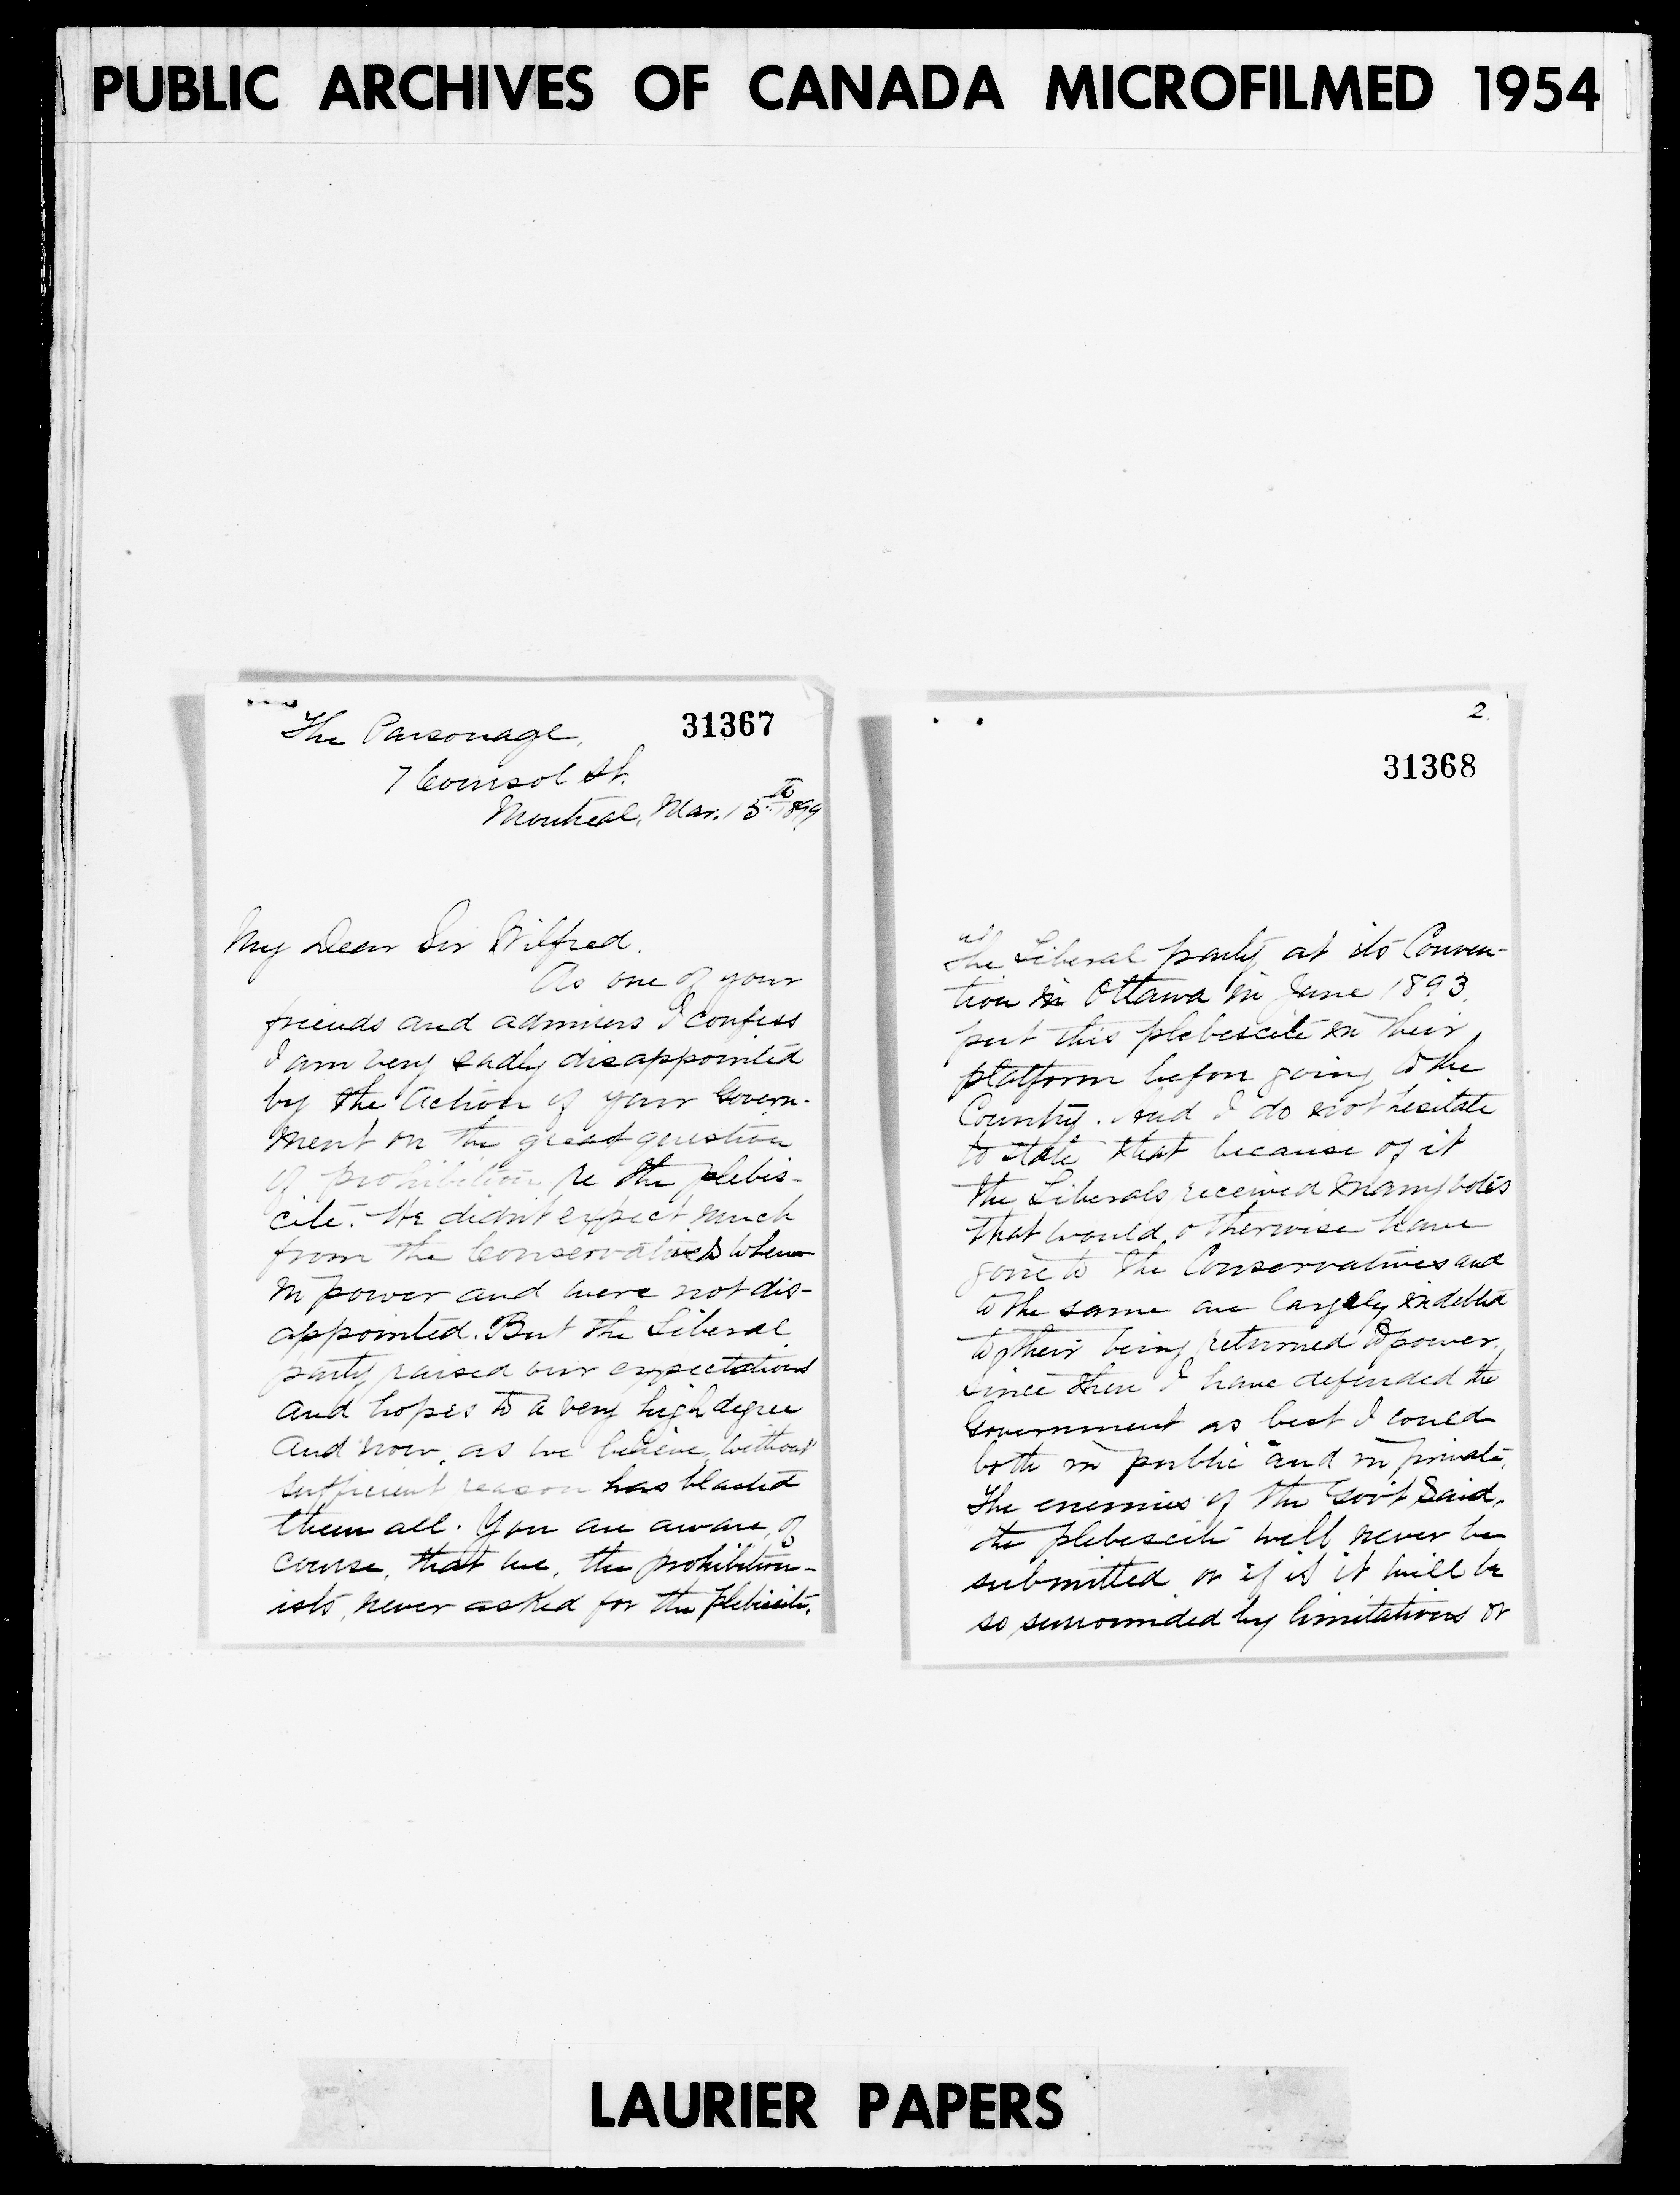 PUBLIC ARCHIVES OF CANADA MICROFILMED 1954
31367
The Parsonage,
7 Coursol St.
Montreal, Mar. 15th 1899
My Dear Sir Wilfred.
As one of your
friends and admirers I confess
I am very sadly disappointed
by the action of your Govern-
ment on the great question
of prohibition re the plebis-
cite. We didn't expect much
from the Conservatives when
in power and were not dis-
appointed. But the Liberal
party raised our expectations
and hopes to a very high degree
and now, as we believe, without
sufficient reason has blasted
them all. You are aware, of
course, that we, the prohibition-
ists, never asked for the plebiscite.
2.
31368
The Liberal party at its Conven-
tion in Ottawa in June 1893,
put this plebescite in their
platform before going to the
Country. And I do not hesitate
to state that because of it
the Liberals received many votes
that would otherwise have
gone to the Conservatives and
to the same are largely indebted
to their being returned to power.
Since then I have defended the
Government as best I could
both in public and in private.
The enemies of the Gov't said,
the plebescite will never be
submitted or if it will be
so surrounded by limitations or
LAURIER PAPERS